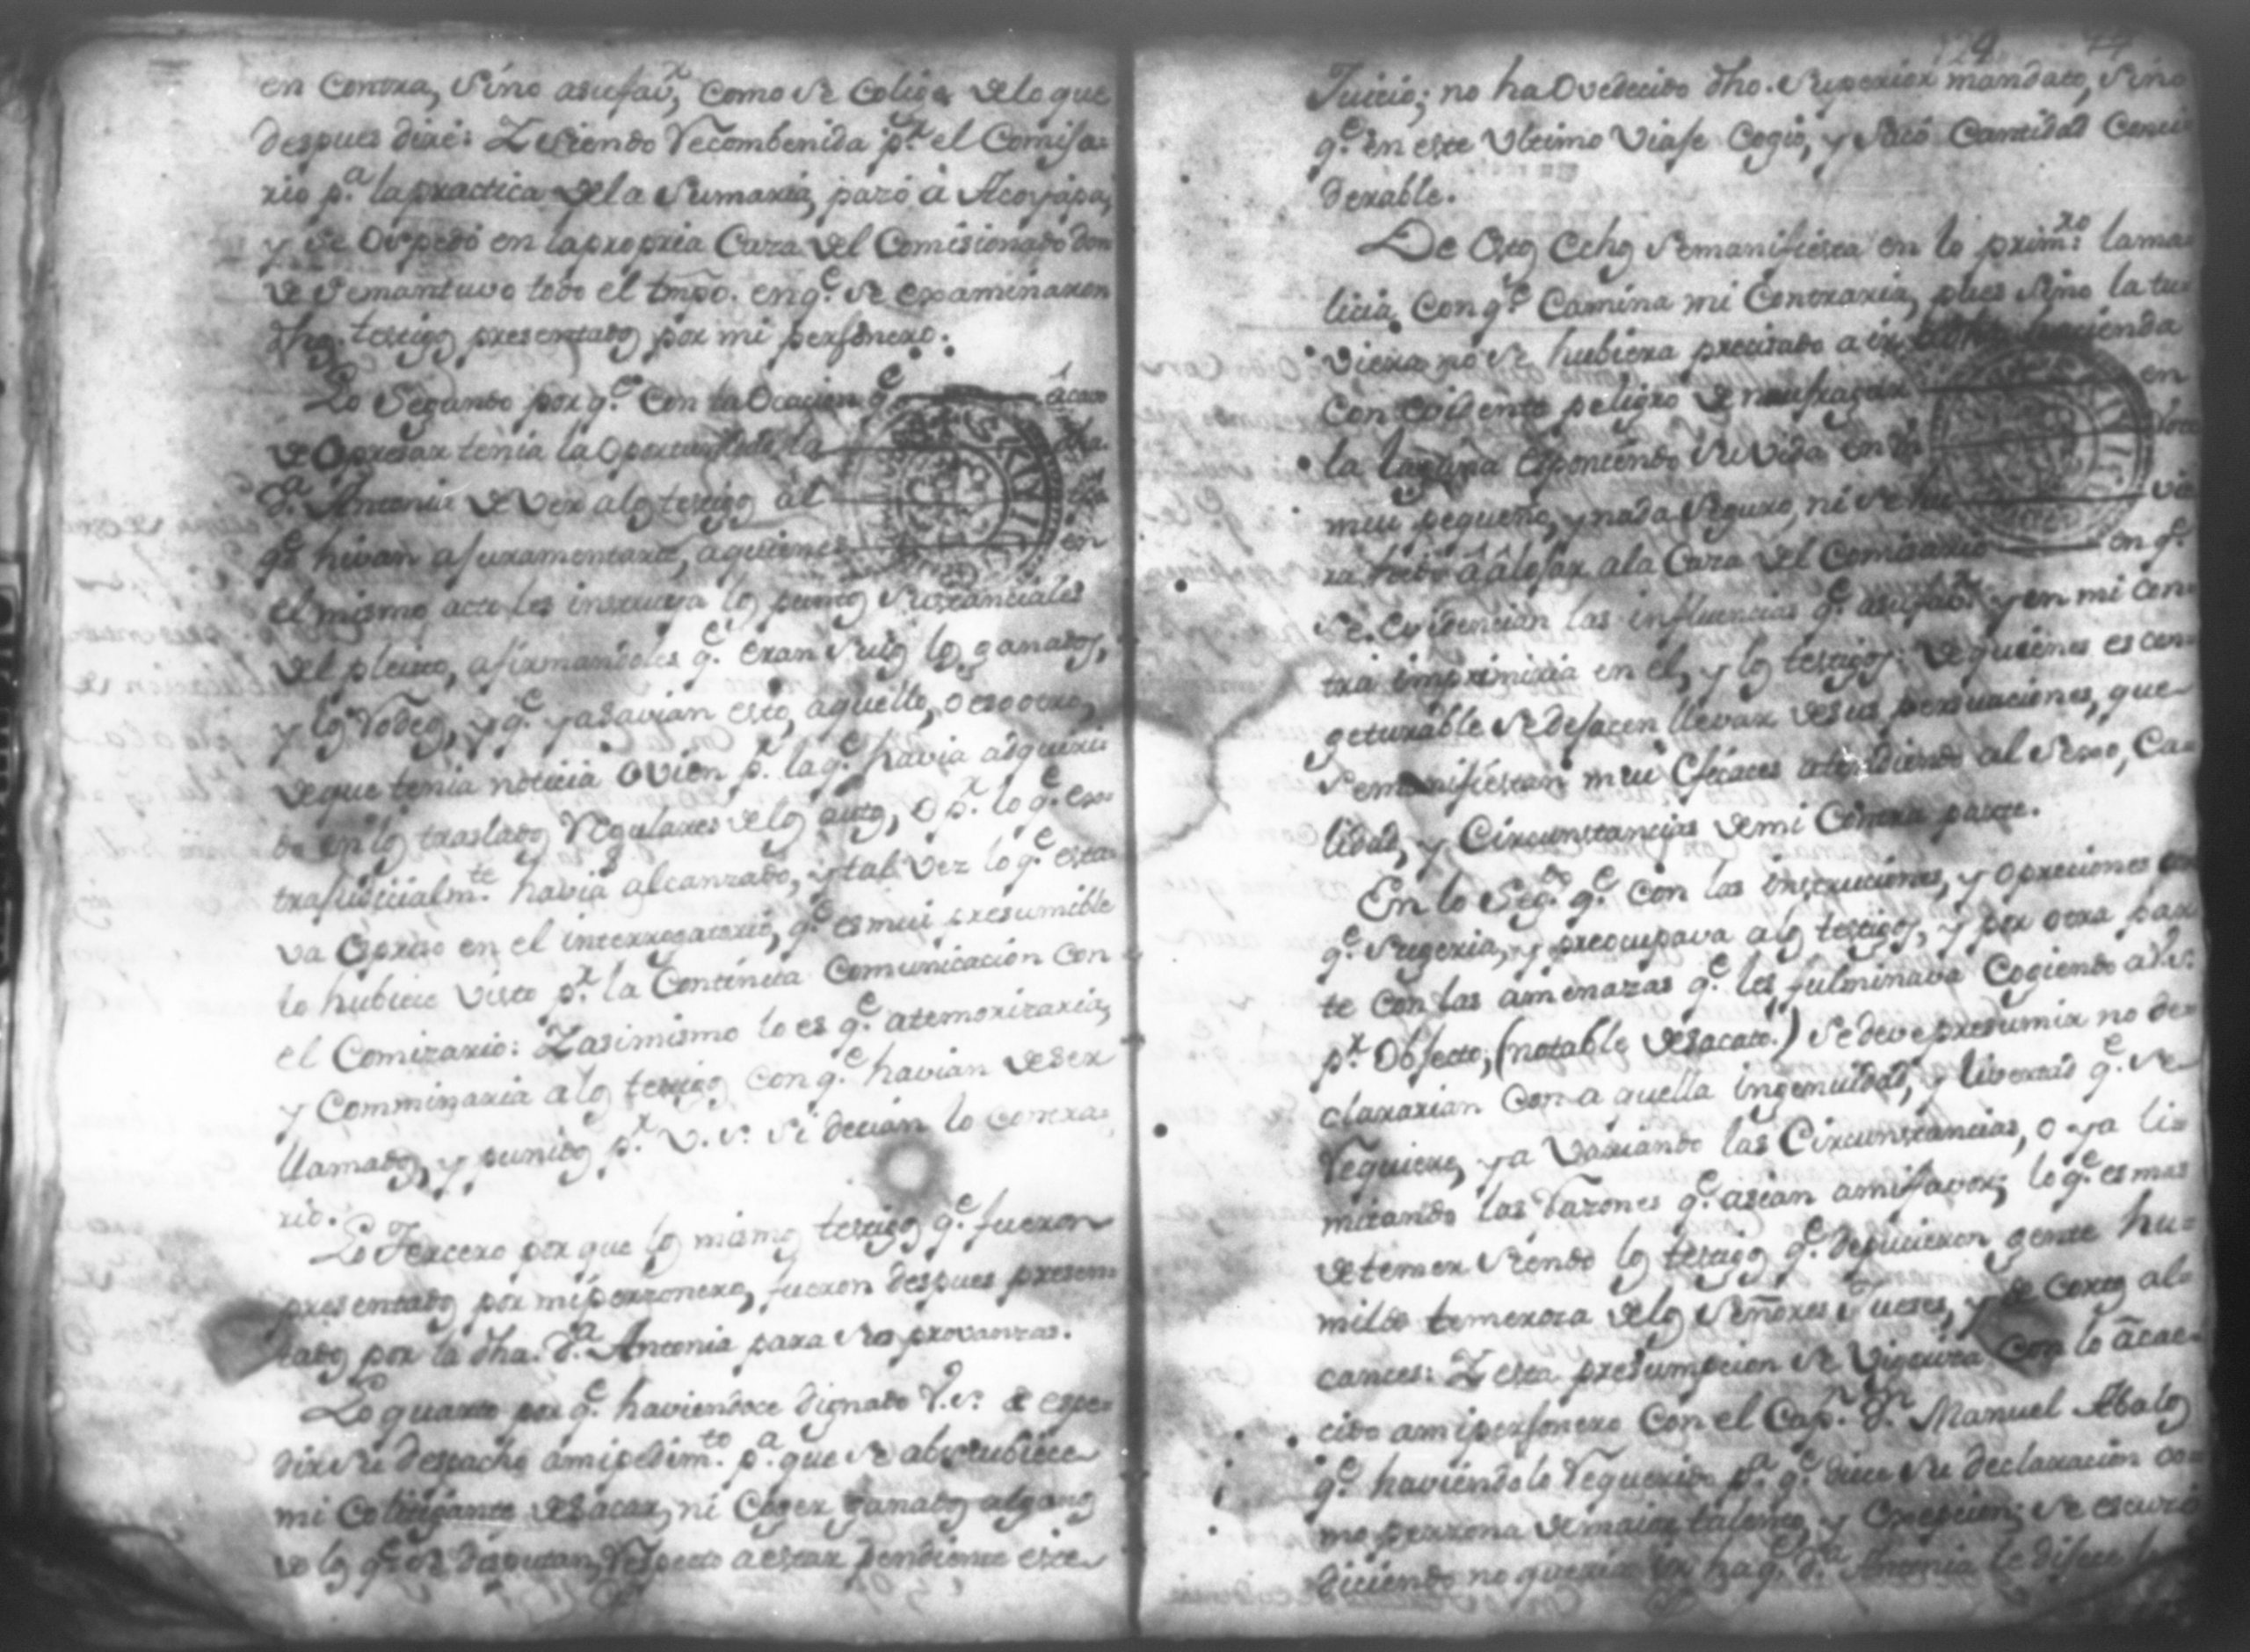 en contra, sino asufav.r, como se colige de lo que
despues dire: Y siendo recombenida p.r el Comisa=
rio p.a la practica de la Sumaria, pazó à Acoyapa,
y se Ospedó en la propria Caza del Comisionado don
de se mantuvo todo el tmpo. en q.e se examinaron
dhos. testigos presentados por mi personero.
Lo Segundo por q.e con la Ocacion q.e
de Opresar tenia la Oportunidad la
D.a Antonia de ver a los testigos al
q.e hivan a juramentarse, a quienes en
el mismo acto les instruya los puntos sustanciales
del pleito, afirmandoles q.e eran suios los ganados,
y los Rodeos, y q.e ya savian esto, aquello, o eso otro,
de que tenia noticia O vien p.r la q.e havia adquiri
do en los traslados Regulares de los autos, o p.r lo q.e ex=
trajudicialm.te havia alcanzado, y tal vez lo q.e esta=
va Opreso en el interrogatorio, q.e es mui presumible
lo hubiese visto p.r la Continua Comunicación con
el Comizario: Y asimismo lo es q.e atemorizaria,
y Comminaria a los testigos con q.e havian de ser
llamados, y punidos p.r V.S. si decian lo contra=
rio.
Lo Tercero por que los mismos testigos q.e fueron
presentados por mi perzonero, fueron despues presen=
tados por la dha. D.a Antonia para sus provanzas.
Lo quarto por q.e haviendoce dignado V.S. de espe=
dir su despacho a mi pedim.to p.a que se abstubiece
mi Colitigante de sacar, ni Coger ganados algunos
de los q.e se disputan, Respecto a estar pendiente este
129 77
Juicio; no ha Ovedecido dho. Superior mandato, sino
q.e en este Ultimo Viaje Cogió, y sacó Cantidad Conci
derable.
De Estos Echos se manifiesta en lo prim.ro la ma=
licia con q.e Camina mi Contraria, pues sino la tu=
viera no se hubiera precisado a ir hacienda
con evidente peligro de naufragar en
la laguna esponiendo su vida en
mui pequeño, y nada Seguro, ni se hu vie
ra ido â âlojar a la Caza del Comisario en q.e
se evidencian las influencias q.e asufab.r y en mi con=
tra imprimiria en el, y los testigos: de quienes es con=
geturable se dejacen llevar de sus persuaciones, que
se manifiestan mui Eficaces atendiendo al Sexo, Ca=
lidad, y Circunstancias de mi Contra parte.
En lo Seg.do q.e con las instruciones, y opreciones con
q.e sugeria, y preocupava a los testigos, y por otra par
te con las amenazas q.e les fulminava Cogiendo a V.S.
p.r Objecto, (notable desacato.) Se deve presumir no de=
clararian con a quella ingenuidad, y livertad q.e se
Requiere, ya Variando las Circunstancias, o ya li=
mitando las Razones q.e asian a mi favor; lo q.e es mas
de temer siendo los testigos q.e depusieron gente hu=
milde temeroza de los Señores Jueses, y de cortos al=
cances: Y esta presumpcion se Vigoriza con lo âcae=
cido a mi personero con el Cap.n D.n Manuel Abalos
q.e haviendolo Requerido p.a q.e diese su declaracion co=
mo perzona de maior talento, y Excepcion; se escuzó
diciendo no queria q.e D.a Antonia le dijece